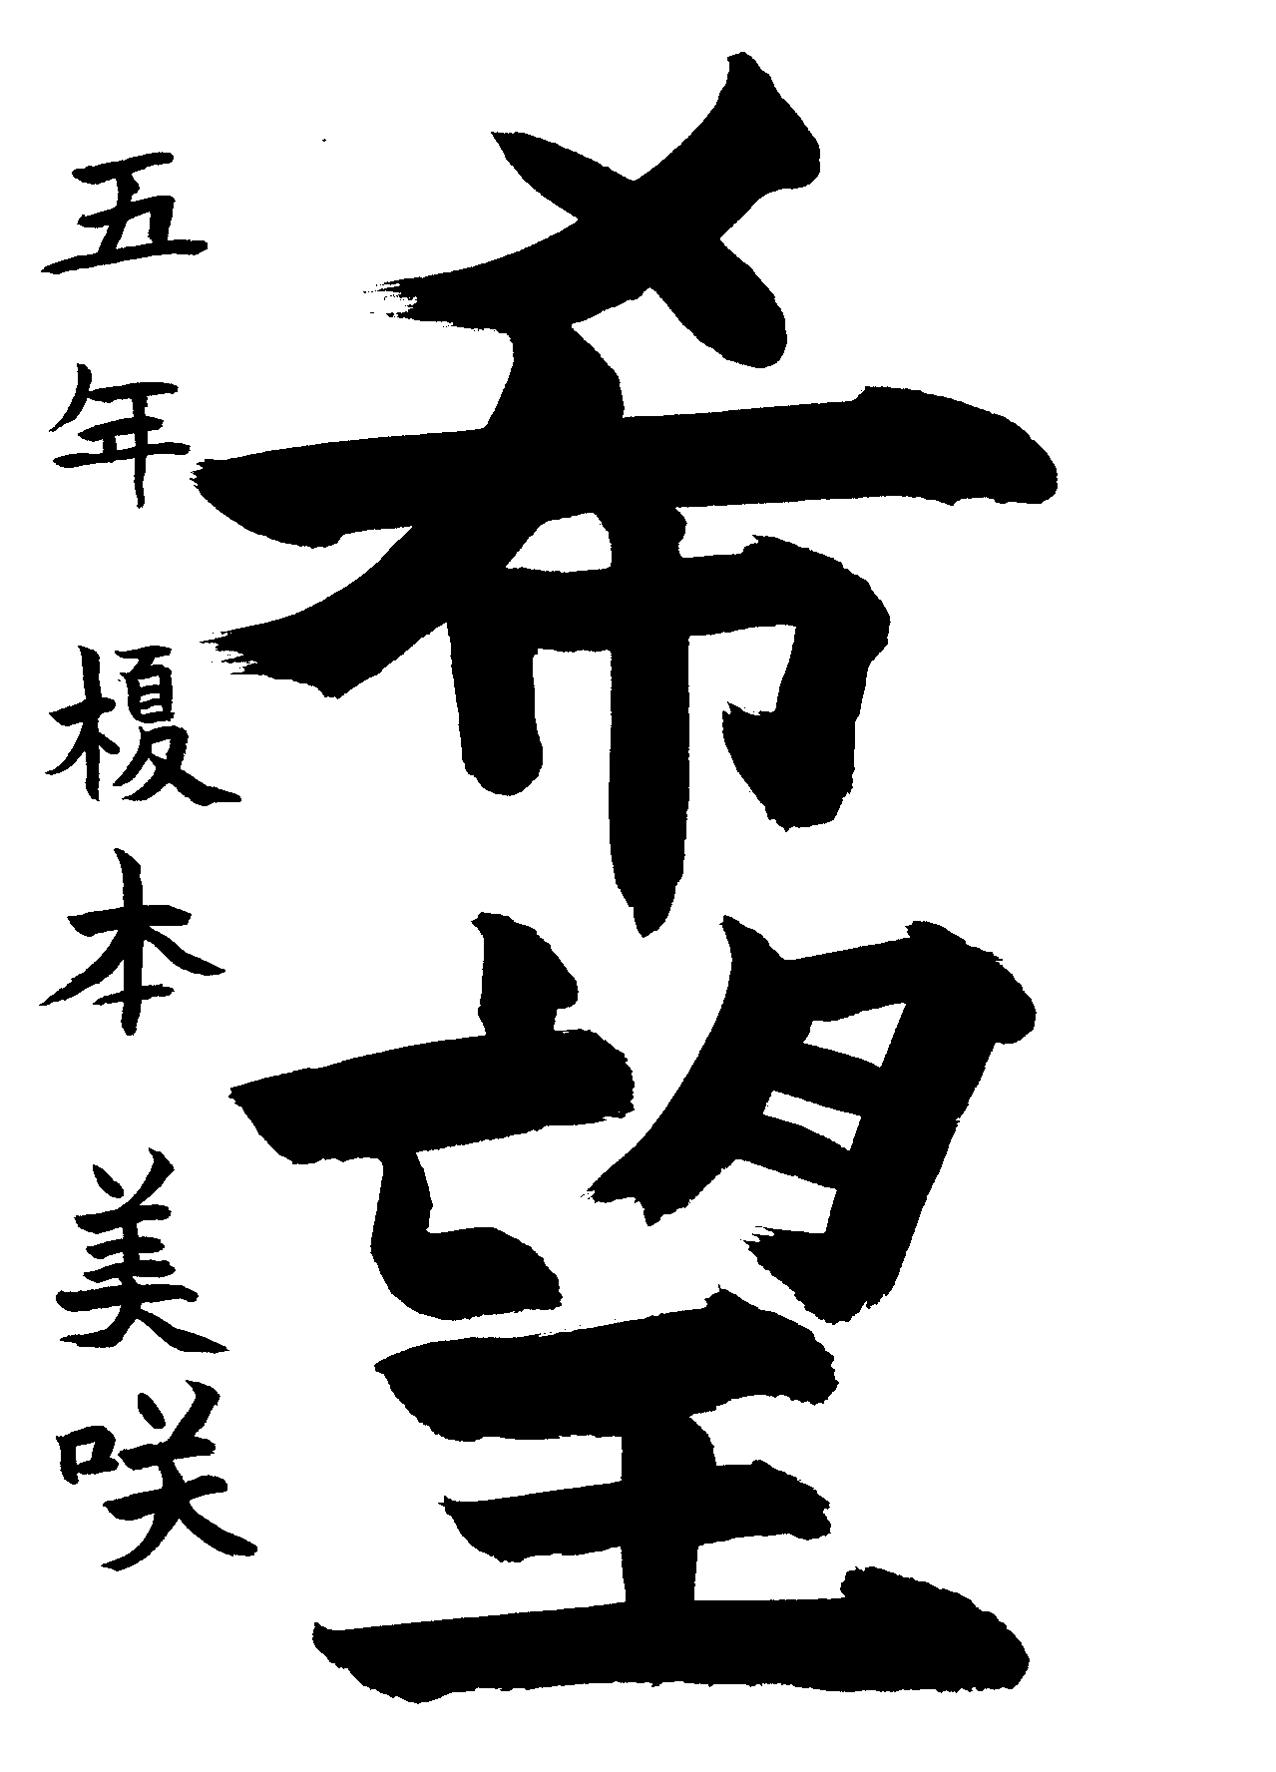 希望
五年 榎本 美咲